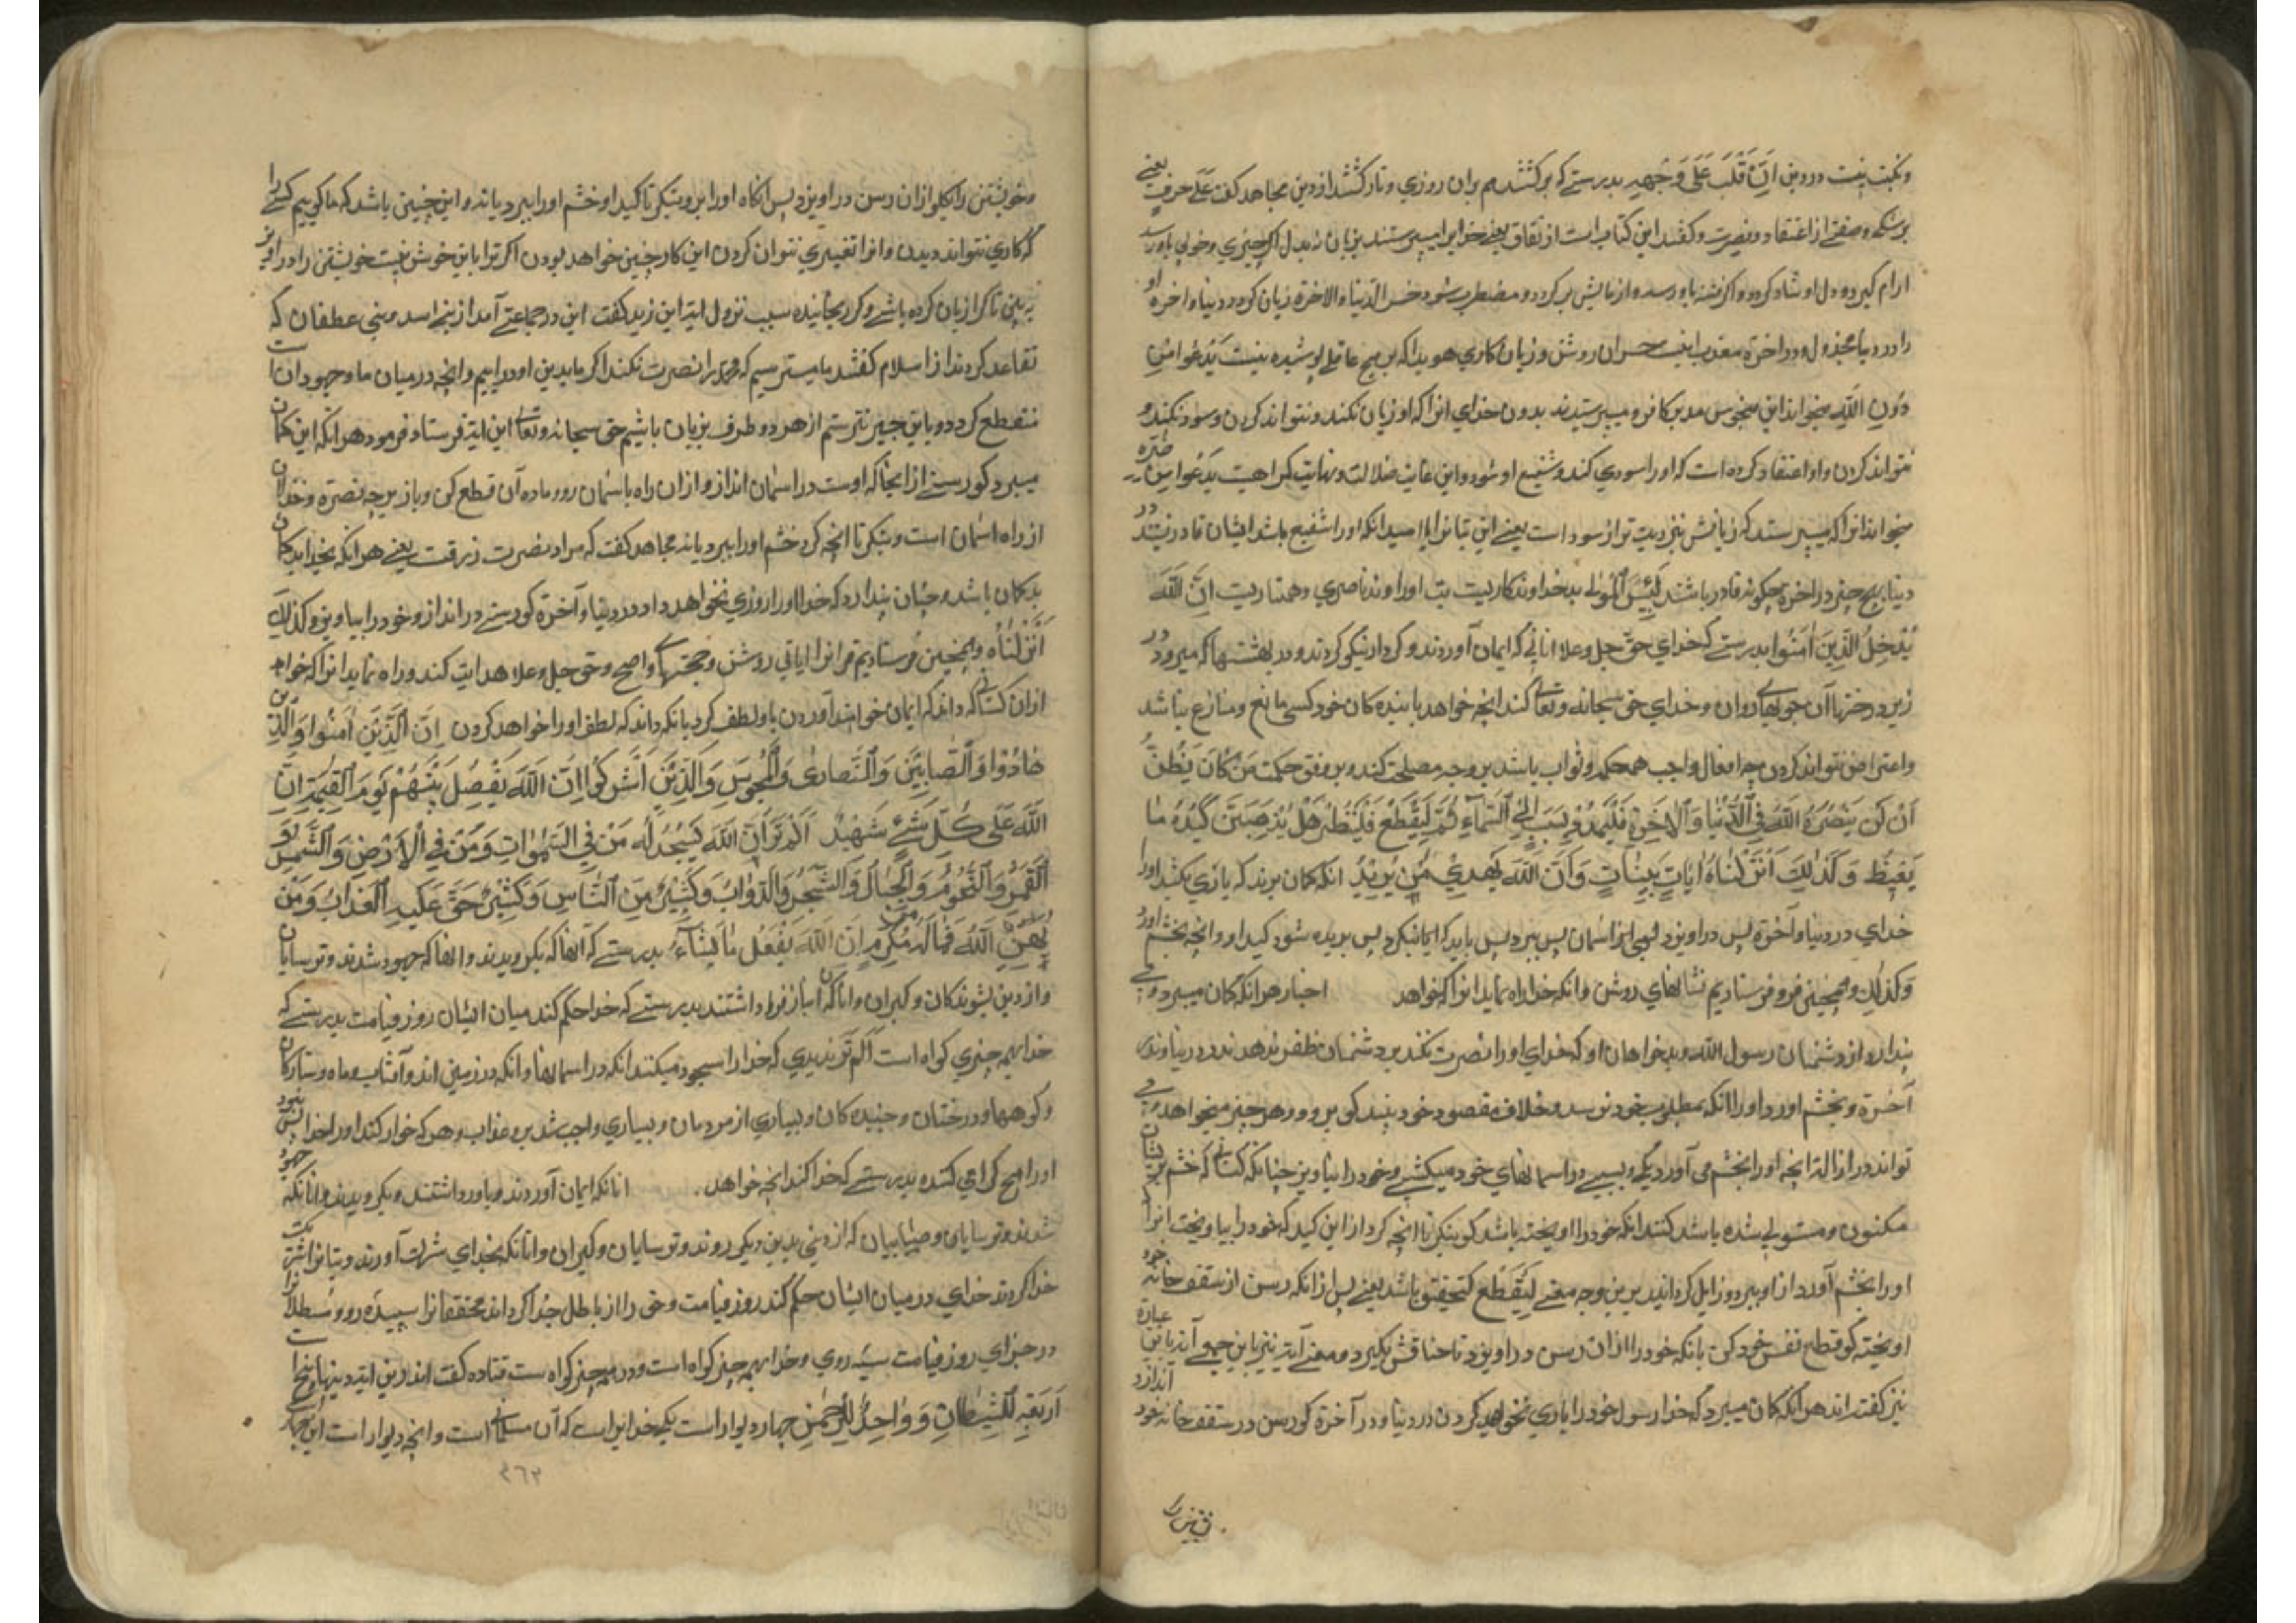 ونکبت نیست در دین اِنْ قَلَبَ عَلَی وَجْهِهِ بدرستے که برکشتند هم بران روزی و تارکشتند از دین مجاهد کفت علے حرف یعنے
بر شک وصفتے از اعتقاد و بصیرت و کفتند این کتاب است از نفاق یعنے خدایرا میپرستند بزبان نه بدل اکر چیزی و خوبی باو رسد
ارام کیرد و دل او شاد کردد و اکر فتنه باو رسد و از مایش بر کردد و مضطرب شود خسر الدنیا والاخرة زیان کرد در دنیا و اخرة او
را در دنیا مخذول و در اخرة معذب اینست خسران روشن و زیان کاری هویدا که بر هیچ عاقلے پوشیده نیست یَدْعُوا مِنْ
دُونِ اللّٰهِ میخواند این کافر و میپرستند بدون خدای انرا که او زیان نکند و نتواند کردن و سود نکند و
نتواند کردن و او اعتقاد کرده است که او را سودی کند و شفیع او شود و این غایت ضلالت و نهایت کمراهیست یَدْعُوا لَمَنْ ضَرُّهُ
میخواند انرا که میپرستد که زیانش نزدیک تر از سود است یعنے این بتانرا با امید انکه او را شفیع باشد ایشان قادر نیستند در
دنیا بر هیچ چیز در اخرة چکونه قادر باشند لَبِئْسَ الْمَوْلٰے بد خداوند کاریست بت او را و بد ناصری و همتاریست اِنَّ اللّٰهَ
یُدْخِلُ الَّذِینَ اٰمَنُوا بدرستے که خدای حق جل و علا انانی که ایمان آوردند و کردار نیکو کردند در بهشتها که میرود در
زیر درختها آن جویهای روان و خدای حق سبحانه و تعالی کند انچه خواهد با بنده کان خود کسی مانع و منازع نباشد
و اعتراض نتواند کردن چه افعال واجب همه حکمة و ثواب باشد بر وجه مصلحت کند و بر وفق حکمت مَنْ کَانَ یَظُنُّ
اَنْ لَنْ یَنْصُرَهُ اللّٰهُ فِی الدُّنْیَا وَالْاٰخِرَةِ فَلْیَمْدُدْ بِسَبَبٍ اِلَی السَّمَاءِ ثُمَّ لِیَقْطَعْ فَلْیَنْظُرْ هَلْ یُذْهِبَنَّ کَیْدُهُ مَا
یَغِیظُ وَکَذٰلِکَ اَنْزَلْنَاهُ اٰیَاتٍ بَیِّنَاتٍ وَاَنَّ اللّٰهَ یَهْدِی مَنْ یُرِیدُ انکه کمان برند که یاری نکند او را
خدای در دنیا و آخرة پس در اویزد از اسمان پس ببرد پس باید که بنکرد پس بریده شود کید او و انچه بخشم اورد
وکذلک و همچنین فرو فرستادیم نشانهای روشن و انکه خدا راه نماید انرا که خواهد اخبار هر انکه کمان میبرد و مے
پندارد از دشمنان رسول الله و بدخواهان او که خدای او را نصرت نکند بر دشمنان ظفر ندهد نه در دنیا و نه در
آخرة و بخشم اورد او را انکه بمطلوب خود نرسد و خلاف مقصود خود بیند کو برو و هر چیز میخواهد و مے
تواند در ازاله انچه او را بخشم می آورد بکن و بسببے در اسمانهای خود میکشے و خود را بیاویز چنانکه کسانی که خشم بر ایشان
مکنون و مستولی شده باشد کنند انکه خود را اویخته باشد کو بنکر تا انچه کرد از این کید که خود را بیاویخت انرا
او را بخشم آورد از او ببرد و زایل کرداند بر این وجه معنے لِیَقْطَع لتختنق باشد یعنے پس از انکه رسن از سقف خانه خود
اویخته کو قطع نفس خود کن بانکه خود را از ان رسن در اویزد تا خناقش بکیرد و معنے آیت نیز باین جمع آید باین عبارة
نیز کفته اند هر انکه کمان میبرد که خدا رسول خود را یاری نخواهد کردن در دنیا و در آخرة کو رسن در سقف خانه خود اندازد
وخویشتن را کلو از ان رسن در اویزد پس انکاه او را ببر و بنکر تا کید او خشم او را ببرد یا نه و این چنین باشد که ما کوییم کسے را
که کاری نتواند دیدن و انرا تغییری نتوان کردن این کار چنین خواهد بودن اکر ترا باین خوش نیست خویشتن را در اویز
ببین تا کرا زیان کرده باشے و کرا رنجانیده سبب نزول ایت ابن زید کفت این در جماعتے آمد از بنے اسد و بنی غطفان که
تقاعد کردند از اسلام کفتند ما میترسیم که محمد را نصرت نکند اکر ما بدین او در اییم و انچه در میان ما و جهودان است
منقطع کردد و باین چیز نترسیم از هر دو طرف بزیان باشیم حق سبحانه و تعالی این ایت فرستاد و فرمود هر انکه این کمان
میبرد کو رسنے از انجا که اوست در اسمان انداز و از ان راه باسمان رو و ماده آن قطع کن و باز بر چه نصرة و خذلان
از راه اسمان است و بنکر تا انچه کرد خشم او را ببرد یا نه مجاهد کفت که مراد بنصرت رزقست یعنے هر انکه بخدای کمان
بد کمان باشد و چنان پندارد که خدا او را روزی نخواهد داد در دنیا و آخرة کو رسنے در انداز و خود را بیاویز وکذلک
اَنْزَلْنَاهُ و همچنین فرستادیم قرانرا ایاتی روشن و حجتهای واضح و حق جل و علا هدایت کند و راه نماید انرا که خواهد
از ان کسانی که داند که ایمان خواهند آوردن یا ولطف کرد بانکه داند که لطف او را خواهد کردن اِنَّ الَّذِینَ اٰمَنُوا وَالَّذِینَ
هَادُوْا وَالصَّابِئِیْنَ وَالنَّصَارٰی وَالْمَجُوْسَ وَالَّذِیْنَ اَشْرَکُوْا اِنَّ اللّٰهَ یَفْصِلُ بَیْنَهُمْ یَوْمَ الْقِیٰمَةِ اِنَّ
اللّٰهَ عَلٰی کُلِّ شَیْءٍ شَهِیْدٌ اَلَمْ تَرَ اَنَّ اللّٰهَ یَسْجُدُ لَهُ مَنْ فِی السَّمٰوَاتِ وَمَنْ فِی الْاَرْضِ وَالشَّمْسُ وَ
الْقَمَرُ وَالنُّجُوْمُ وَالْجِبَالُ وَالشَّجَرُ وَالدَّوَابُّ وَکَثِیْرٌ مِنَ النَّاسِ وَکَثِیْرٌ حَقَّ عَلَیْهِ الْعَذَابُ وَمَنْ
یُهِنِ اللّٰهُ فَمَا لَهُ مِنْ مُکْرِمٍ اِنَّ اللّٰهَ یَفْعَلُ مَا یَشَاءُ بدرستے که انها که بکرویدند و انها که جهود شدند و ترسایان
و از دین بشوندکان و کبران و انانکه انباز فرا داشتند بدرستے که خدا حکم کند میان ایشان روز قیامت بدرستے که
خدا بهمه چیزی کواه است اَلَمْ تَرَ ندیدی که خدا را سجود میکنند انکه در اسمانها و انکه در زمین اند و آفتاب و ماه و ستارکان
و کوهها و درختان و جنبنده کان و بسیاری از مردمان و بسیاری واجب شد برو عذاب و هر که خوار کند او را خدا پس نبود
او را هیچ کرامی کننده بدرستے که خدا کند انچه خواهد. انانکه ایمان آوردند و باور داشتند و بکرویدند و انانکه جهود
شدند و ترسایان و صبابیان که از دینی بدین دیکر روند و ترسایان و کبران و انانکه بخدای شرک آورند و بتانرا شریک
خدا کردند خدای در میان ایشان حکم کند روز قیامت و حق را از باطل جدا کرداند محققانرا سپیده رو و مبطلانرا
در جزای روز قیامت سیه روی و خدا بهمه چیز کواه است و در همه چیز کواه ست قتاده کفت اندرین ایت دینها پنج است
اَرْبَعَةٌ لِلشَّیْطَانِ وَوَاحِدٌ لِلرَّحْمٰنِ چهار دیوار است یکے خدایراست که آن مسلمانی است و انچه دیوار است این چهار
۳۶۳